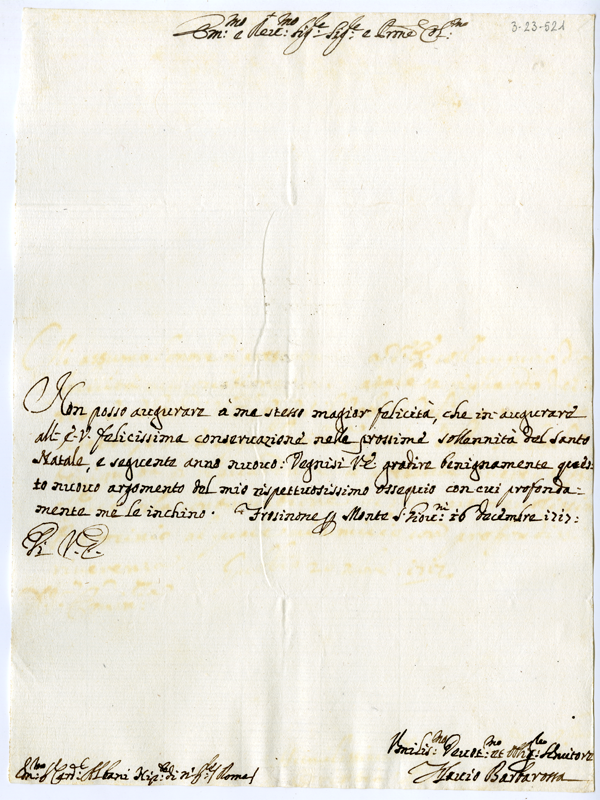 3-23-521
Em:mo e Reu:mo Sig:re Sig:re e Prone Col:mo
Non posso augurare à me stesso magior felicità, che in augurare
all' E. V. felicissima conseruatione nelle prossime sollannità del Santo
Natale, e seguente anno nuouo: Degnisi V. E. gradire benignamente ques-
to nuouo argomento del mio rispettuosissimo ossequio con cui profonda-
mente me le inchino. Frosinone Monte S. Gioi:ni 16 decembre 1717:
Di V. E.
Vmilis:mo Deuot:mo et obblig:mo Seruitore
Em:mo Card:le Albani Roma
Flauio Barbarossa